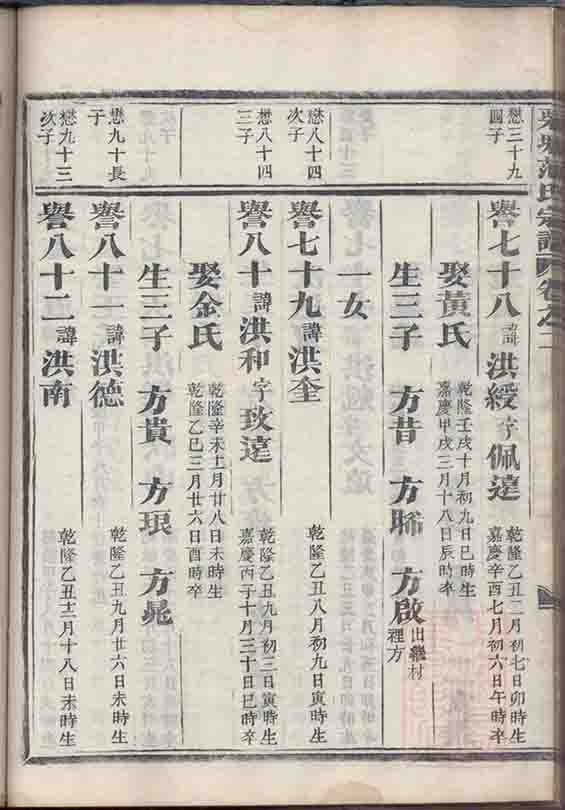 范氏宗譜
卷之二
懋三十九
四子
譽七十八 諱洪綬 字佩遠
乾隆乙丑二月初七日卯時生
嘉慶辛酉七月初六日午時卒
娶黃氏
乾隆壬戌十月初九日巳時生
嘉慶甲戌三月十八日辰時卒
生三子 方昔 方睎 方啟
出繼村
裡方
一女
懋八十四
次子
譽七十九 諱洪奎
乾隆乙丑八月初九日寅時生
懋八十四
三子
譽八十 諱洪和 字致遠
乾隆乙丑九月初三日寅時生
嘉慶丙子十月三十日巳時卒
娶金氏
乾隆辛未十一月廿八日未時生
乾隆乙巳三月廿六日酉時卒
生三子 方貴 方琅 方晁
懋九十長
子
譽八十一 諱洪德
乾隆乙丑九月廿六日未時生
懋九十三
次子
譽八十二 諱洪南
乾隆乙丑十二月十八日未時生